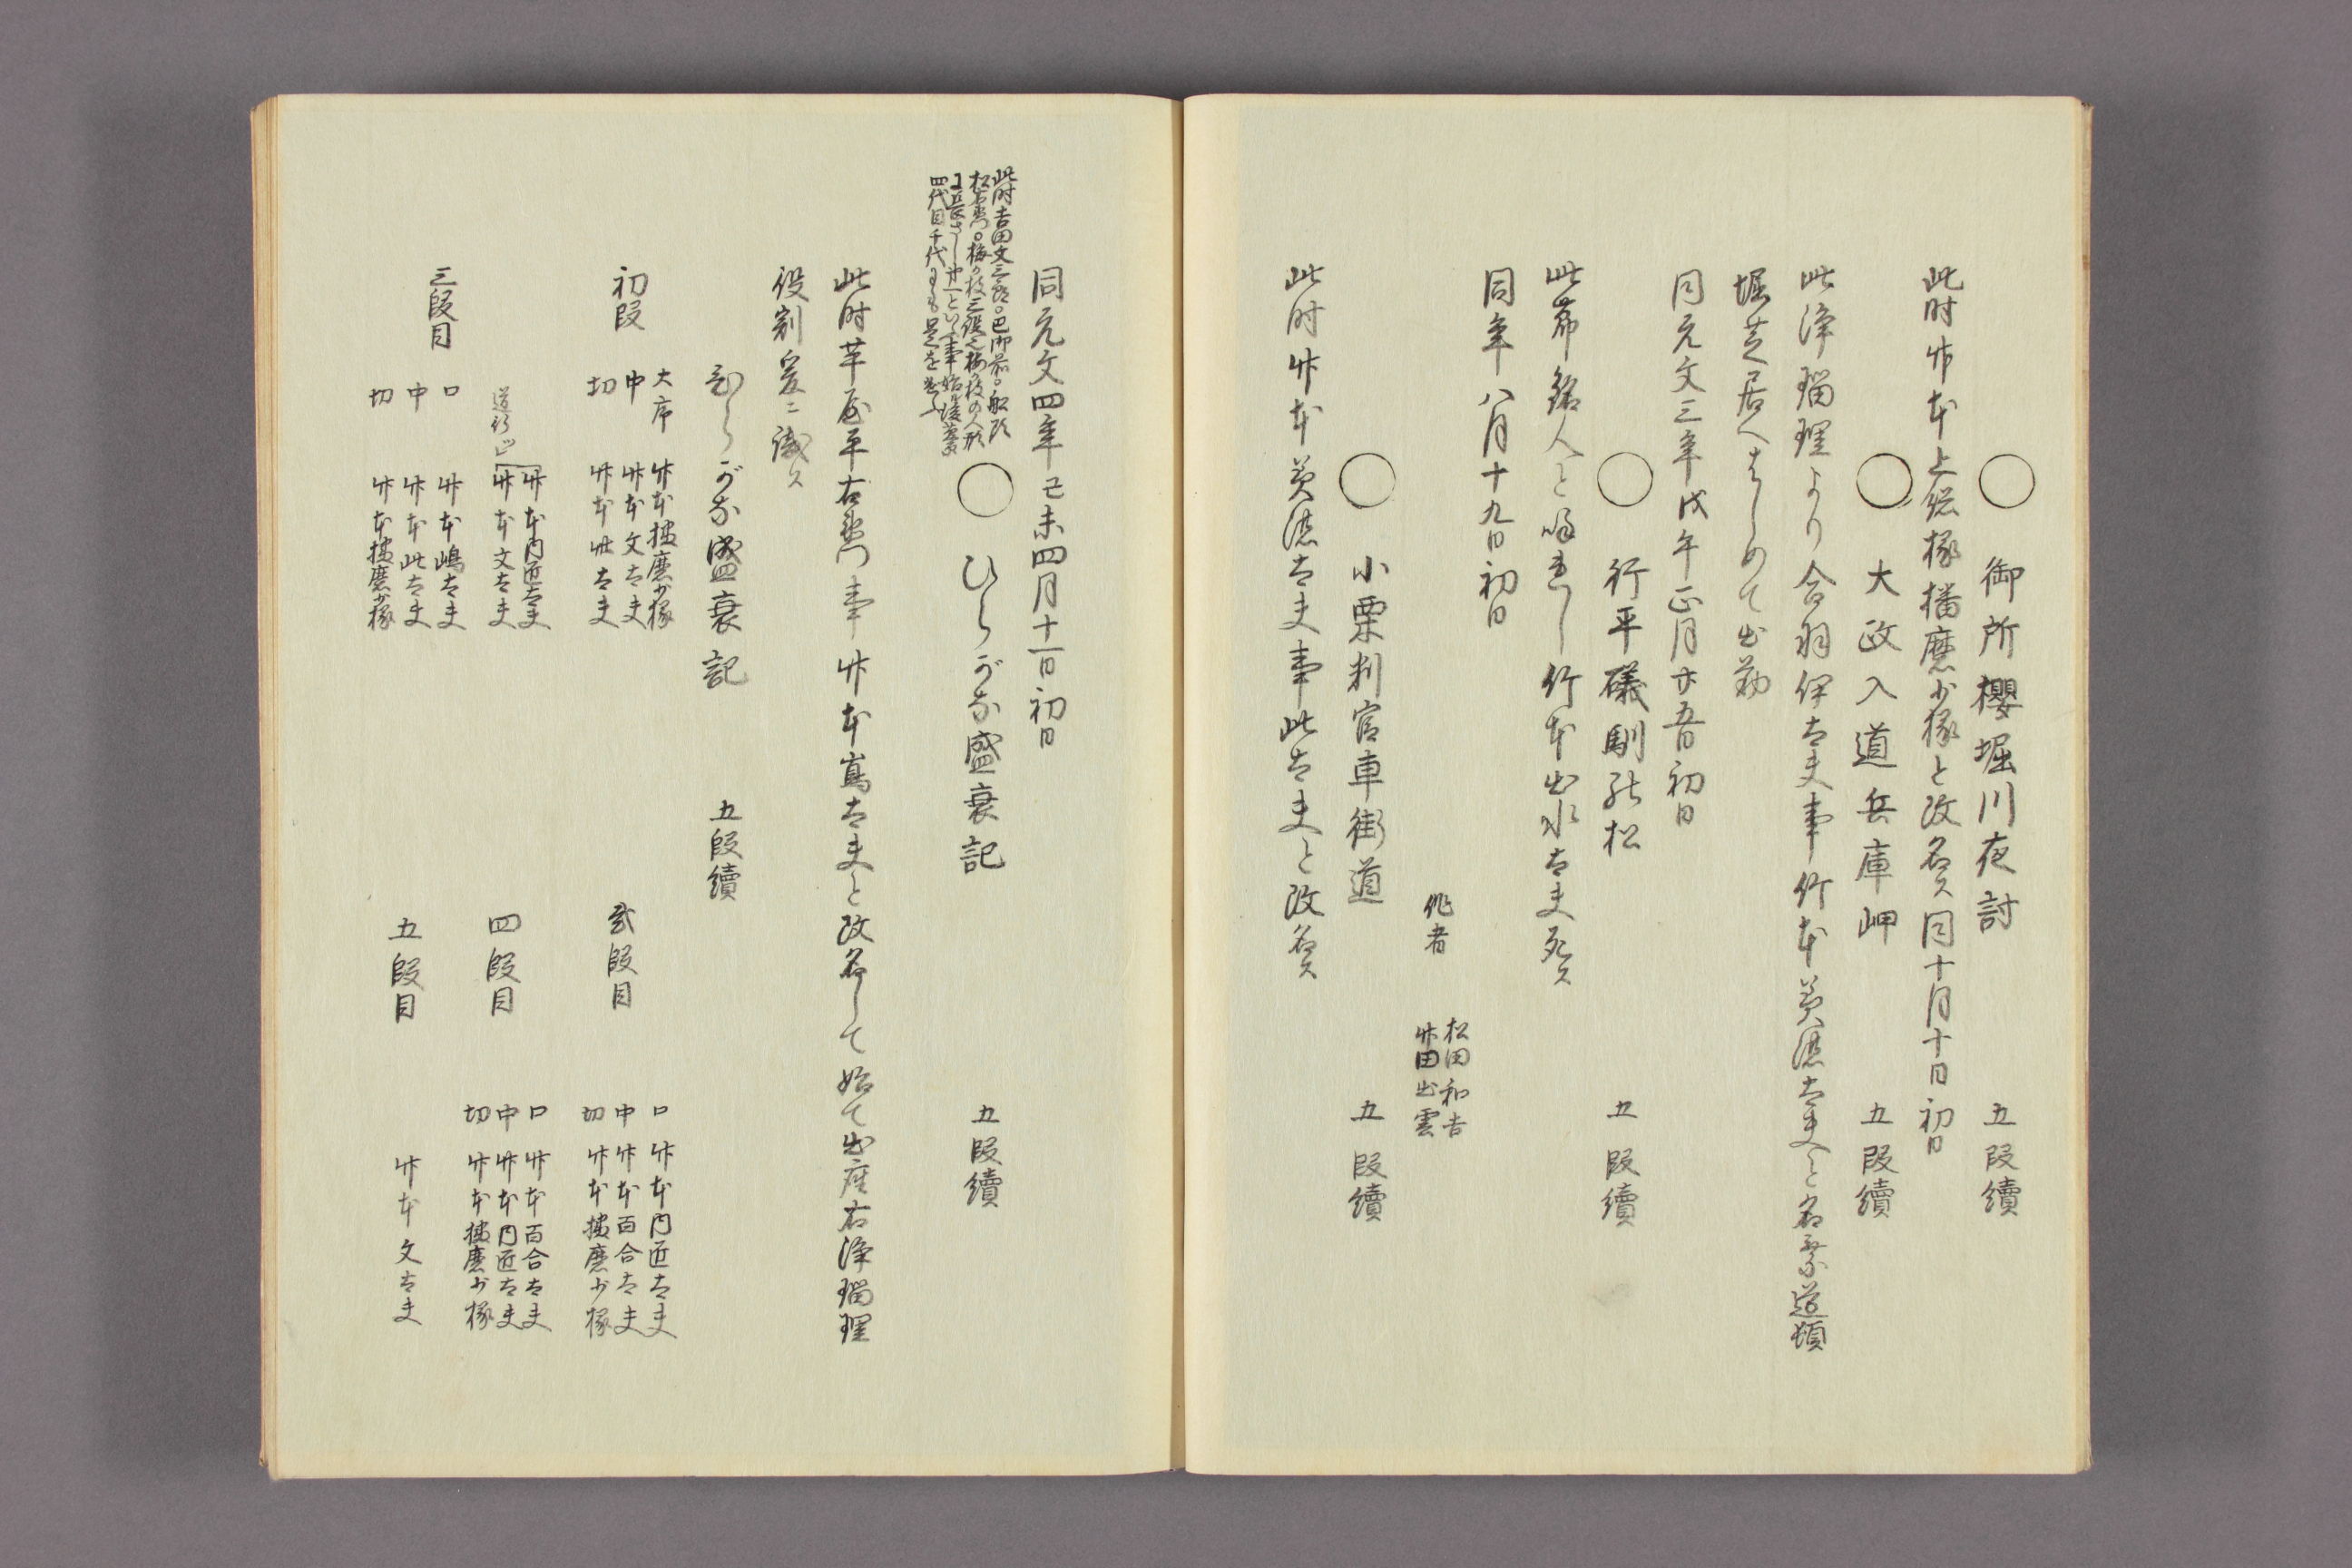 ○ 御所櫻堀川夜討 五段續
此时竹本上総掾播磨少掾と改名ス同十月十日初日
○ 大政入道兵庫岬 五段續
此浄瑠理より合羽伊太夫事竹本美濃太夫と名乗道頓
堀芝居へはしめて出勤
同元文三年戊午正月廿五日初日
○ 行平磯馴松 五段續
此節銘人と呼れし竹本出水太夫死ス
同年八月十九日初日
作者 松田和吉
竹田出雲
○ 小栗判官車街道 五段續
此时竹本美濃太夫事此太夫と改名ス
同元文四年己未四月十一日初日
此时吉田文三郎。巴御前。船頭
松右衛門。梅ヶ枝三役之梅ヶ枝の人形
四代目千代
○ ひらがな盛衰記 五段續
此时芋屋平右衛門事竹本嶌太夫と改名して始て出座右浄瑠理
役割爰ニ識ス
ひらがな盛衰記 五段續
初段 大序 竹本播磨少掾
中 竹本文太夫
切 竹本此太夫
弐段目 口 竹本内匠太夫
中 竹本百合太夫
切 竹本播磨少掾
道行 竹本内匠太夫
竹本文太夫
三段目 口 竹本嶋太夫
中 竹本此太夫
切 竹本播磨少掾
四段目 口 竹本百合太夫
中 竹本内匠太夫
切 竹本播磨少掾
五段目 竹本文太夫